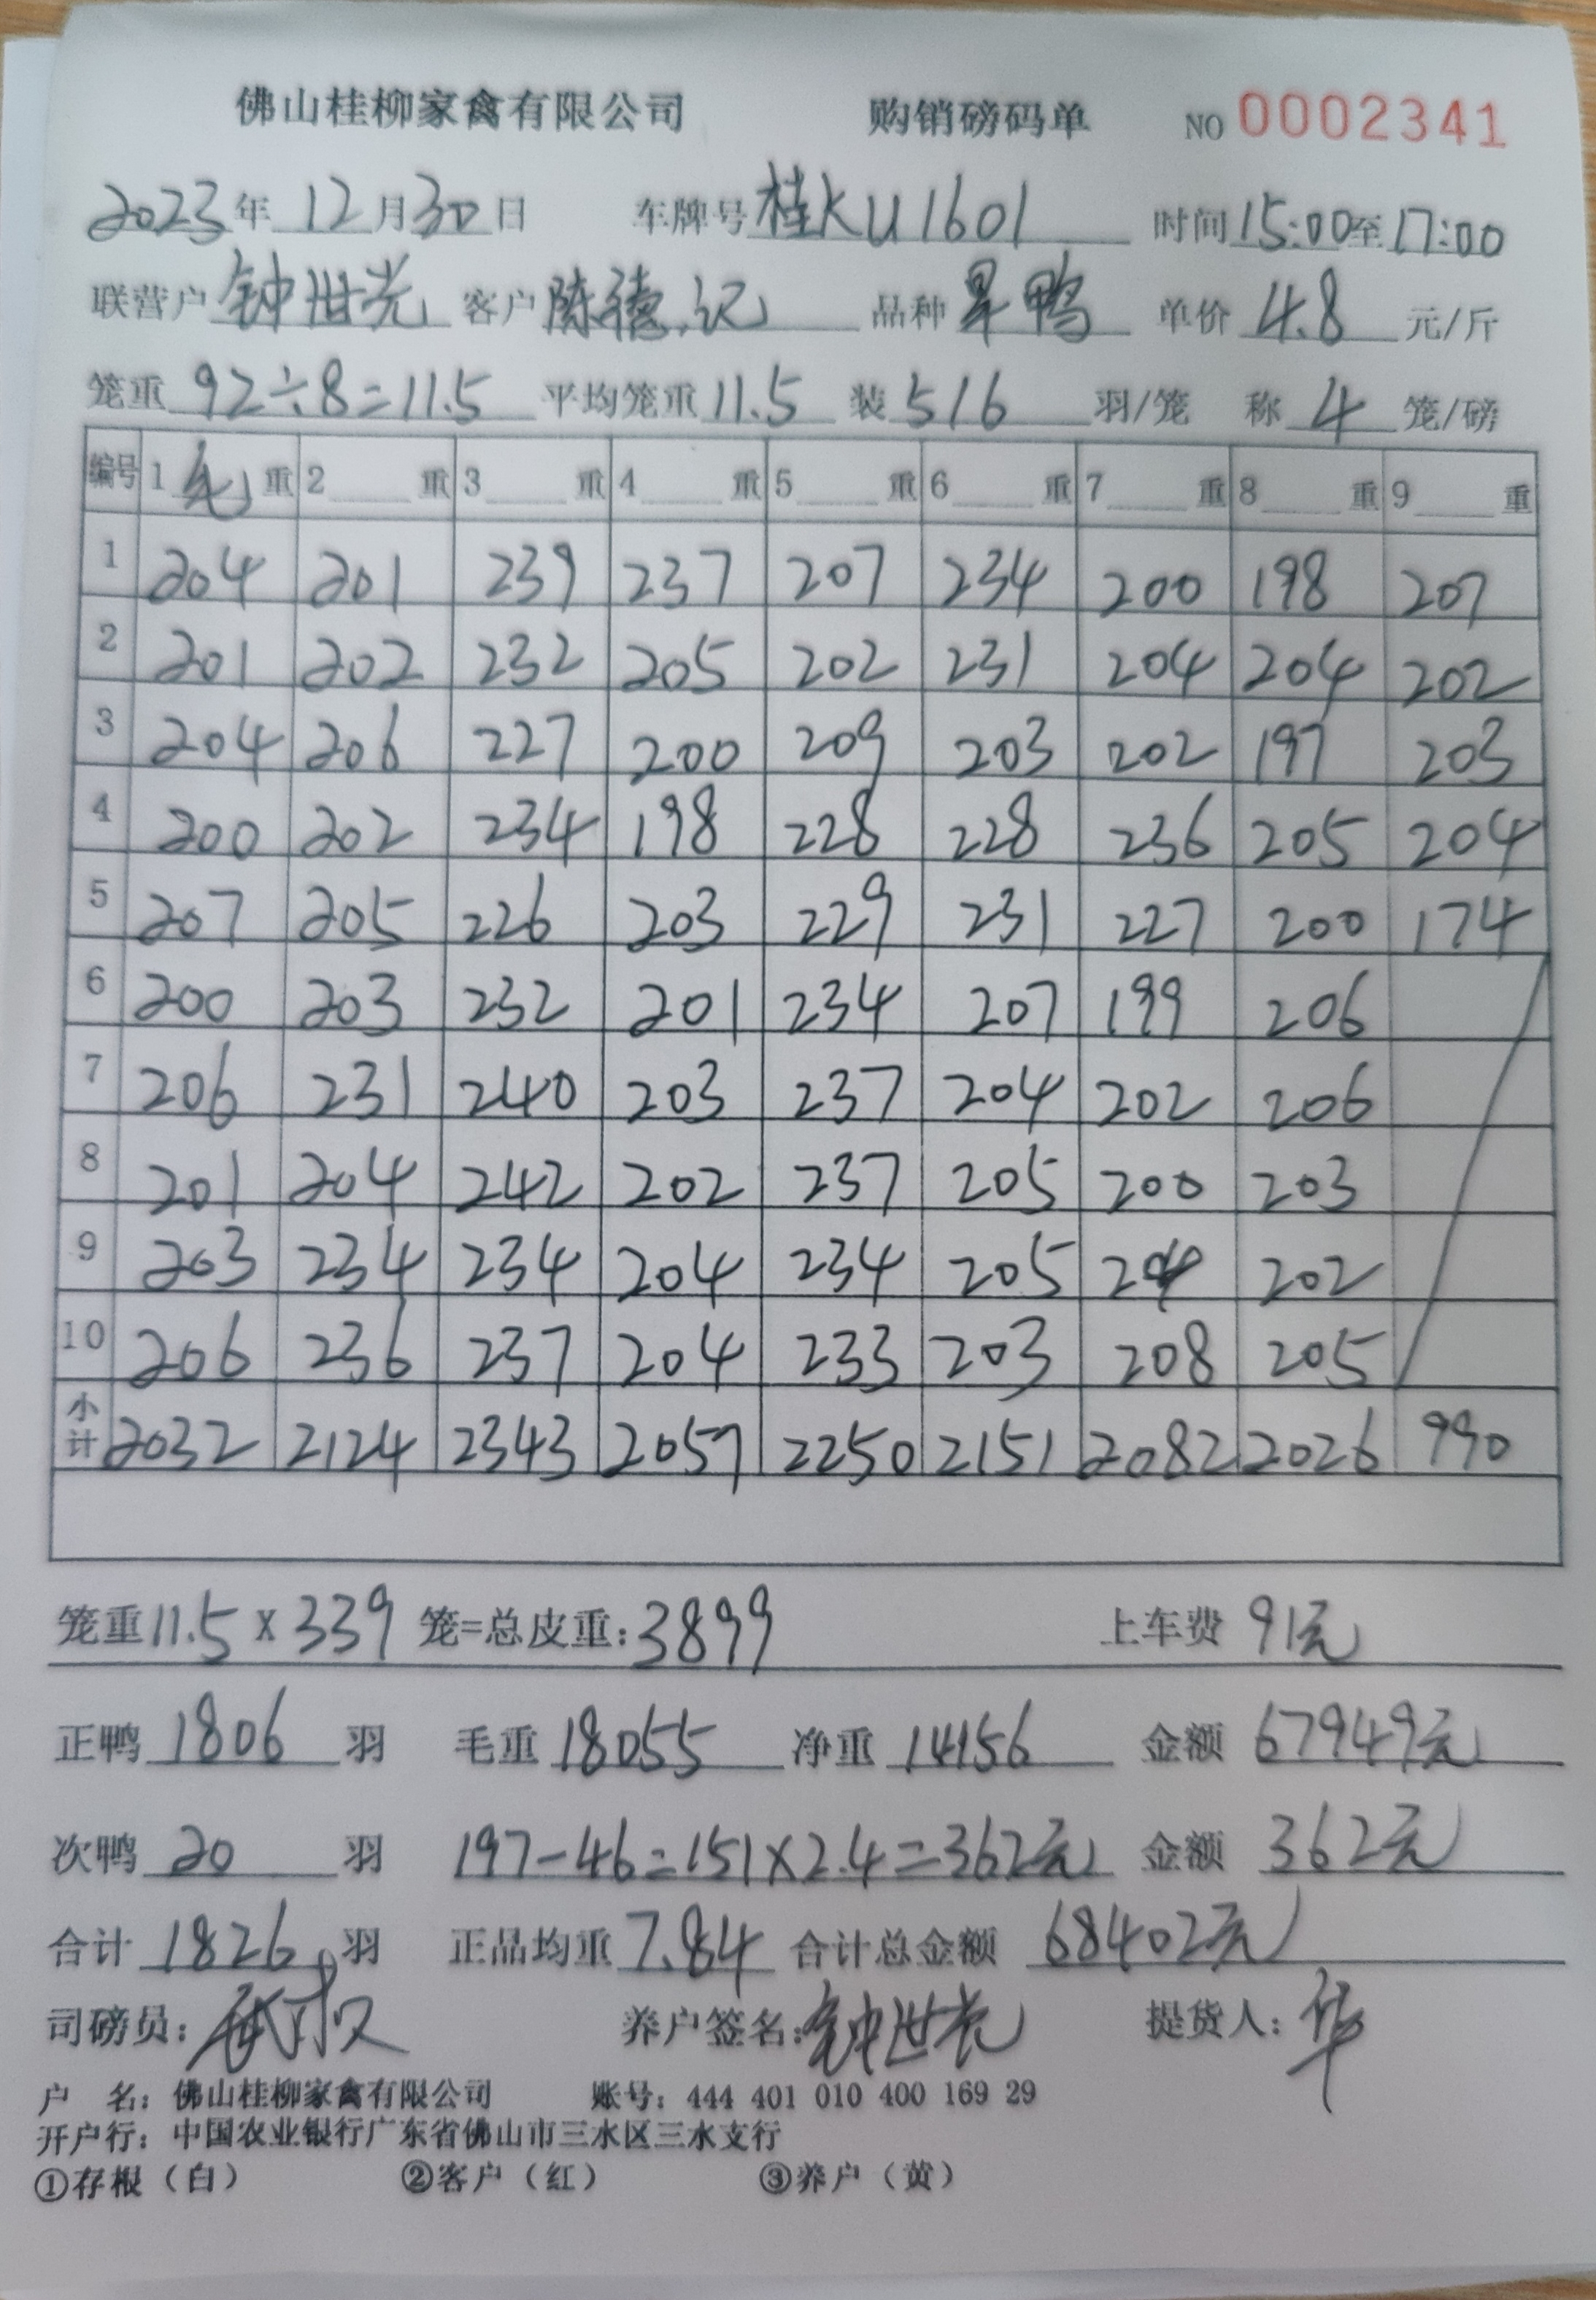 佛山桂柳家禽有限公司 购销磅码单 NO 0002341
2023年 12月30日 车牌号 桂KU1601 时间15:00至17:00
联营户 钟世光 客户 陈德记 品种 旱鸭 单价 4.8 元/斤
笼重 92÷8=11.5 平均笼重 11.5 装 5/6 羽/笼 称 4 笼/磅
编号 1 毛 重 2 重 3 重 4 重 5 重 6 重 7 重 8 重 9 重
1 204 201 239 237 207 234 200 198 207
2 201 202 232 205 202 231 204 204 202
3 204 206 227 200 209 203 202 197 203
4 200 202 234 198 228 228 236 205 204
5 207 205 226 203 229 231 227 200 174
6 200 203 232 201 234 207 199 206
7 206 231 240 203 237 204 202 206
8 201 204 242 202 237 205 200 203
9 203 234 234 204 234 205 204 202
10 206 236 237 204 233 203 208 205
小计 2032 2124 2343 2057 2250 2151 2082 2026 990
笼重 11.5 x 339 笼=总皮重: 3899 上车费 91元
正鸭 1806 羽 毛重 18055 净重 14156 金额 67949元
次鸭 20 羽 197-46=151×2.4=362元 金额 362元
合计 1826 羽 正品均重 7.84 合计总金额 68402元
司磅员: 养户签名: 钟世光 提货人: 华
户 名: 佛山桂柳家禽有限公司 账号: 444 401 010 400 169 29
开户行: 中国农业银行广东省佛山市三水区三水支行
①存根（白） ②客户（红） ③养户（黄）